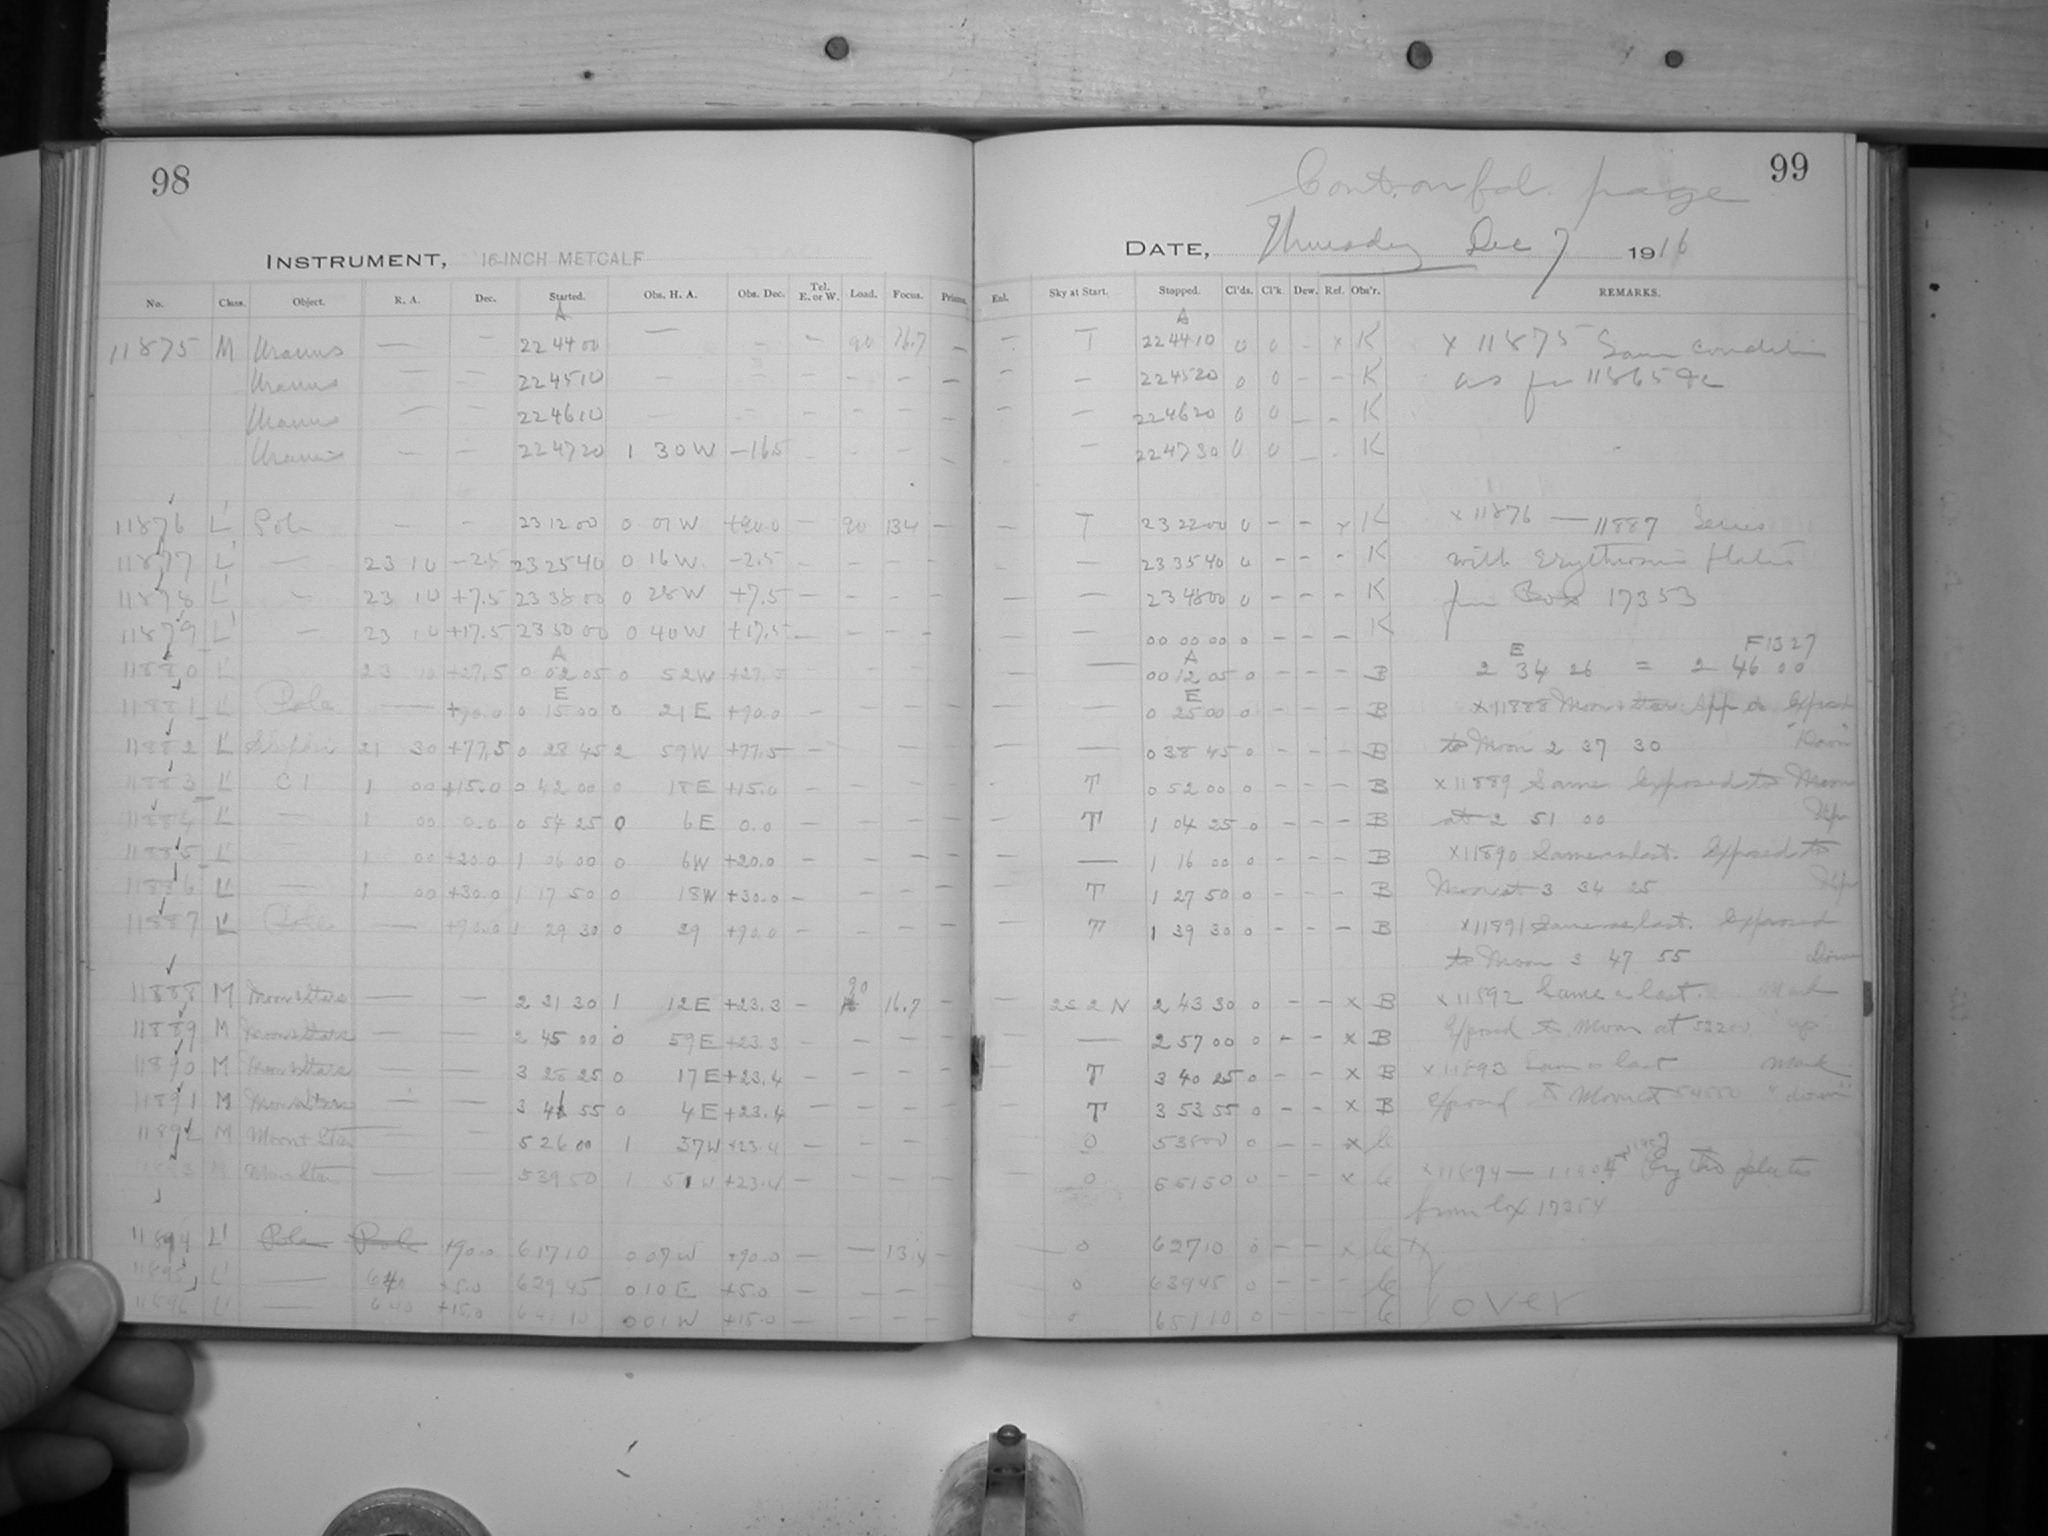 98
INSTRUMENT, 16-INCH METCALF
No. Class. Object. R. A. Dec. Started. Obs. H. A. Obs. Dec. Tel. E. or W. Load. Focus. Prisms.
A
11875 M Uranus — — 22 44 00 — - - 90 16.7 —
Uranus — — 22 45 10 — — - - - —
Uranus — — 22 46 10 — — - - - —
Uranus — — 22 47 20 1 30 W −16.5 - - - —
11876 L' Pole — — 23 12 00 0 07 W +90.0 — 90 13.4 —
11877 L' — 23 10 −2.5 23 25 40 0 16 W −2.5 — — — —
11878 L' — 23 10 +7.5 23 38 00 0 28 W +7.5 — — — —
11879 L' — 23 10 +17.5 23 50 00 0 40 W +17.5 — — — —
A
11880 L' 23 10 +27.5 0 02 05 0 52 W +27.5 — — — —
E
11881 L' Pole — +90.0 0 15 00 0 21 E +90.0 — — — —
11882 L' 21 30 +77.5 0 28 45 2 59 W +77.5 — — — —
11883 L' C 1 1 00 +15.0 0 42 00 0 18 E +15.0 — — — —
11884 L' — 1 00 0.0 0 54 25 0 6 E 0.0 — — — —
11885 L' 1 00 +20.0 1 06 00 0 6 W +20.0 — — — —
11886 L' — 1 00 +30.0 1 17 50 0 18 W +30.0 — — — —
11887 L' Pole — +90.0 1 29 30 0 29 +90.0 — — — —
11888 M Moon & Stars — — 2 31 30 1 12 E +23.3 — 90 16.7 —
11889 M Moon & Stars — — 2 45 00 0 59 E +23.3 — — — —
11890 M Moon & Stars — — 3 28 25 0 17 E +23.4 — — — —
11891 M Moon & Stars — — 3 41 55 0 4 E +23.4 — — — —
11892 M Moon & Star — — 5 26 00 1 37 W +23.4 — — — —
M Moon Star — — 5 39 50 1 51 W +23.4 — — — —
11894 L' Pole Pole +90.0 6 17 10 0 07 W +90.0 — — 13.4 —
11895 L' — 6 40 +5.0 6 29 45 0 10 E +5.0 — — — —
11896 L' — 6 40 +15.0 6 41 10 0 01 W +15.0 — — — —
99
Cont. on fol. page
DATE, Thursday Dec 7 1916
Enl. Sky at Start. Stopped. Cl'ds. Cl'k. Dew. Ref. Obs'r. REMARKS.
A
— T 22 44 10 0 0 - x K x 11875 Same condition
— — 22 45 20 0 0 - - K as for 11865 &c
— — 22 46 20 0 0 - - K
— 22 47 30 0 0 - - K
— T 23 22 00 0 - - x K x 11876 — 11887 Series
— — 23 35 40 0 - - - K with Erythrosin plates
— — 23 48 00 0 - - - K from Box 17353
— — 00 00 00 0 - - - K
E F1327
A 2 34 26 = 2 46 00
— — 00 12 05 0 - - - B
E x 11888 Moon & Stars
— — 0 25 00 0 - - - B
— — 0 38 45 0 - - - B to Moon 2 37 30 "Down"
— T 0 52 00 0 - - - B x 11889 Same Exposed to Moon
— T 1 04 25 0 - - - B at 2 51 00 Up
— — 1 16 00 0 - - - B x 11890 Same as last. Exposed to
— T 1 27 50 0 - - - B Moon at 3 34 25 Up
— T 1 39 30 0 - - - B x 11891 Same as last. Exposed
to Moon 3 47 55 Down
— 2 43 30 0 - - x B x 11892 Same as last.
— — 2 57 00 0 - - x B Exposed to Moon at "up"
— T 3 40 25 0 - - x B x 11893 Same as last
— T 3 53 55 0 - - x B Exposed to Moon at 54550 "down"
0 5 38 00 0 - - x C
— 0 5 51 50 0 - - x C x 11894 — 11904 plates
from box 17354
— 0 6 27 10 0 - - x C
0 6 39 45 0 - - - C
0 6 51 10 0 - - - C over